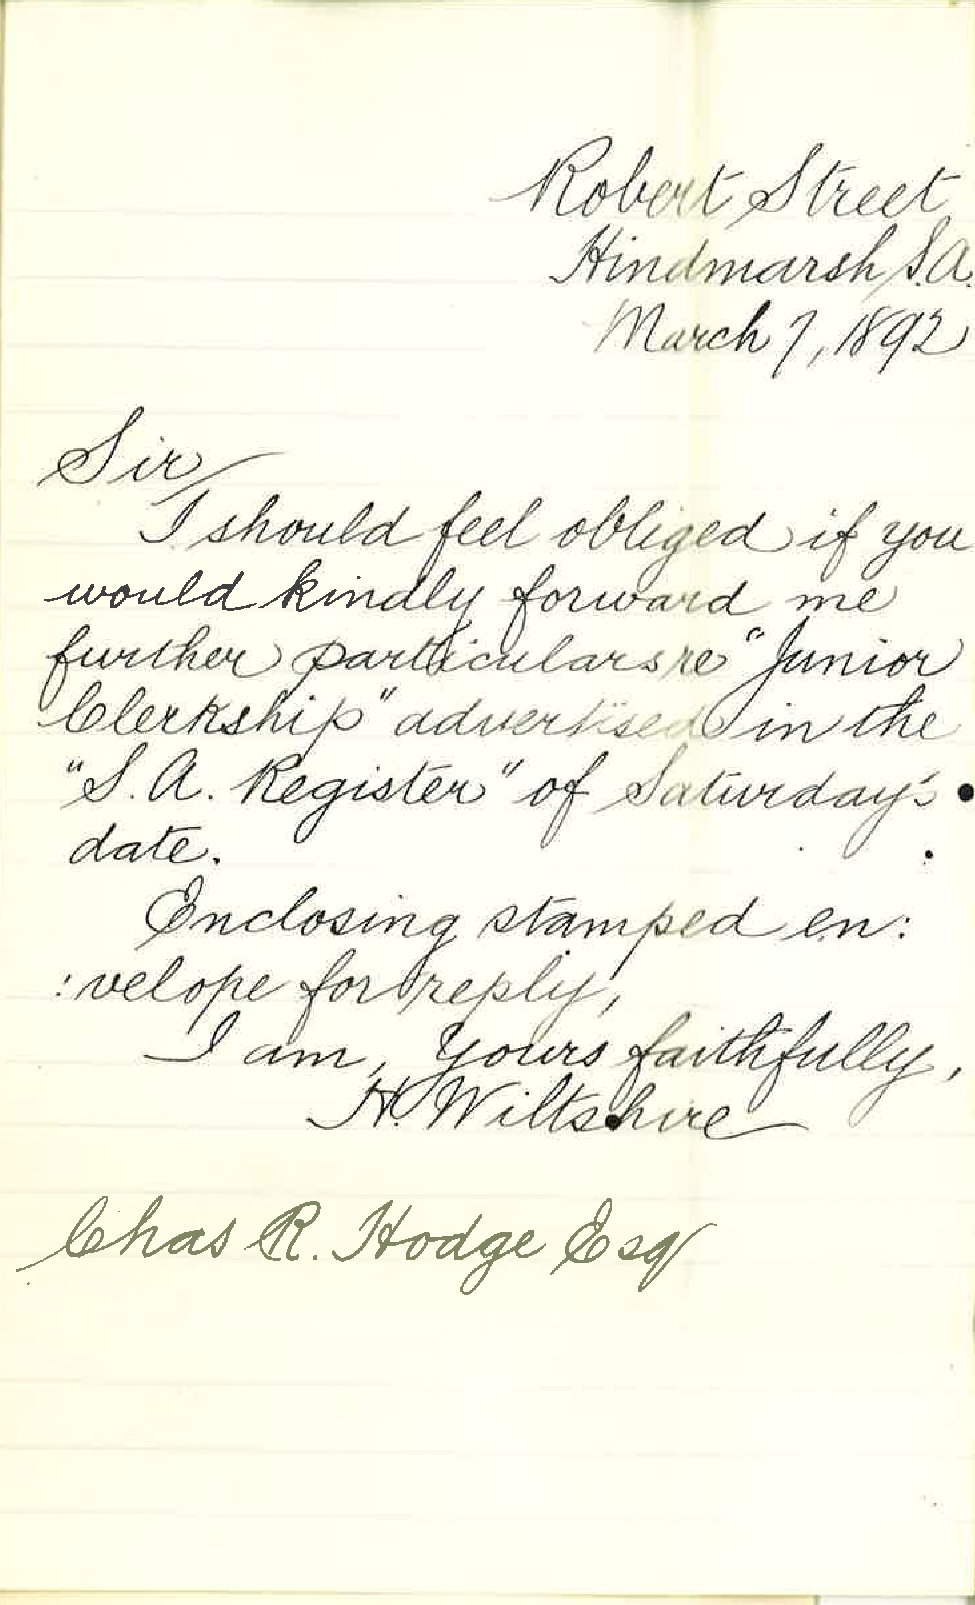 Robert Street
Hindmarsh S.A.
March 7, 1892
Sir
I should feel obliged if you
would kindly forward me
further particulars re "Junior
Clerkship" advertised in the
"S.A. Register" of Saturday's
date.
Enclosing stamped en:
:velope for reply,
I am, Yours faithfully,
H. Wiltshire
Chas R. Hodge Esq